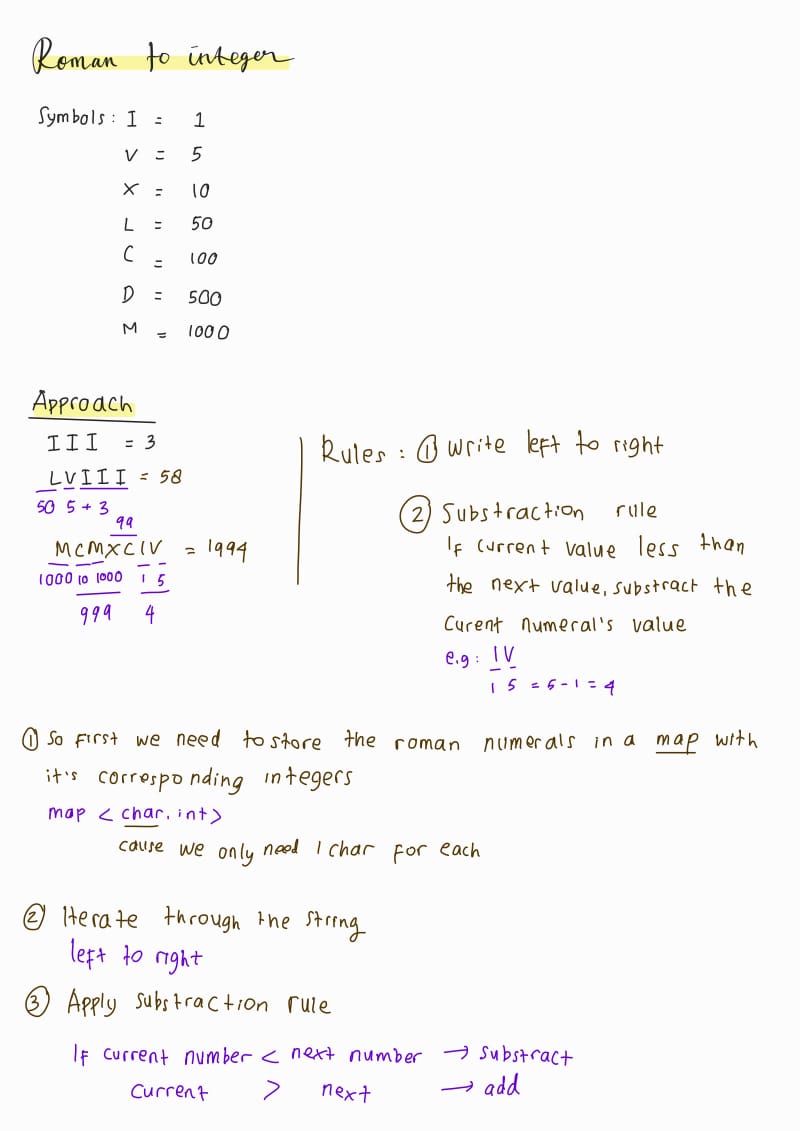 Roman to integer
Symbols: I = 1
V = 5
X = 10
L = 50
C = 100
D = 500
M = 1000
Approach
III = 3
LVIII = 58
50 5 + 3
99
MCMXCIV = 1994
1000 10 1000 1 5
999 4
Rules: ① Write left to right
② Substraction rule
If current value less than
the next value, substract the
Curent numeral's value
e.g: IV
1 5 = 5 - 1 = 4
① So first we need to store the roman numerals in a map with
it's corresponding integers
map < char, int>
cause we only need 1 char for each
② Iterate through the string
left to right
③ Apply substraction rule
If current number < next number → substract
current > next → add